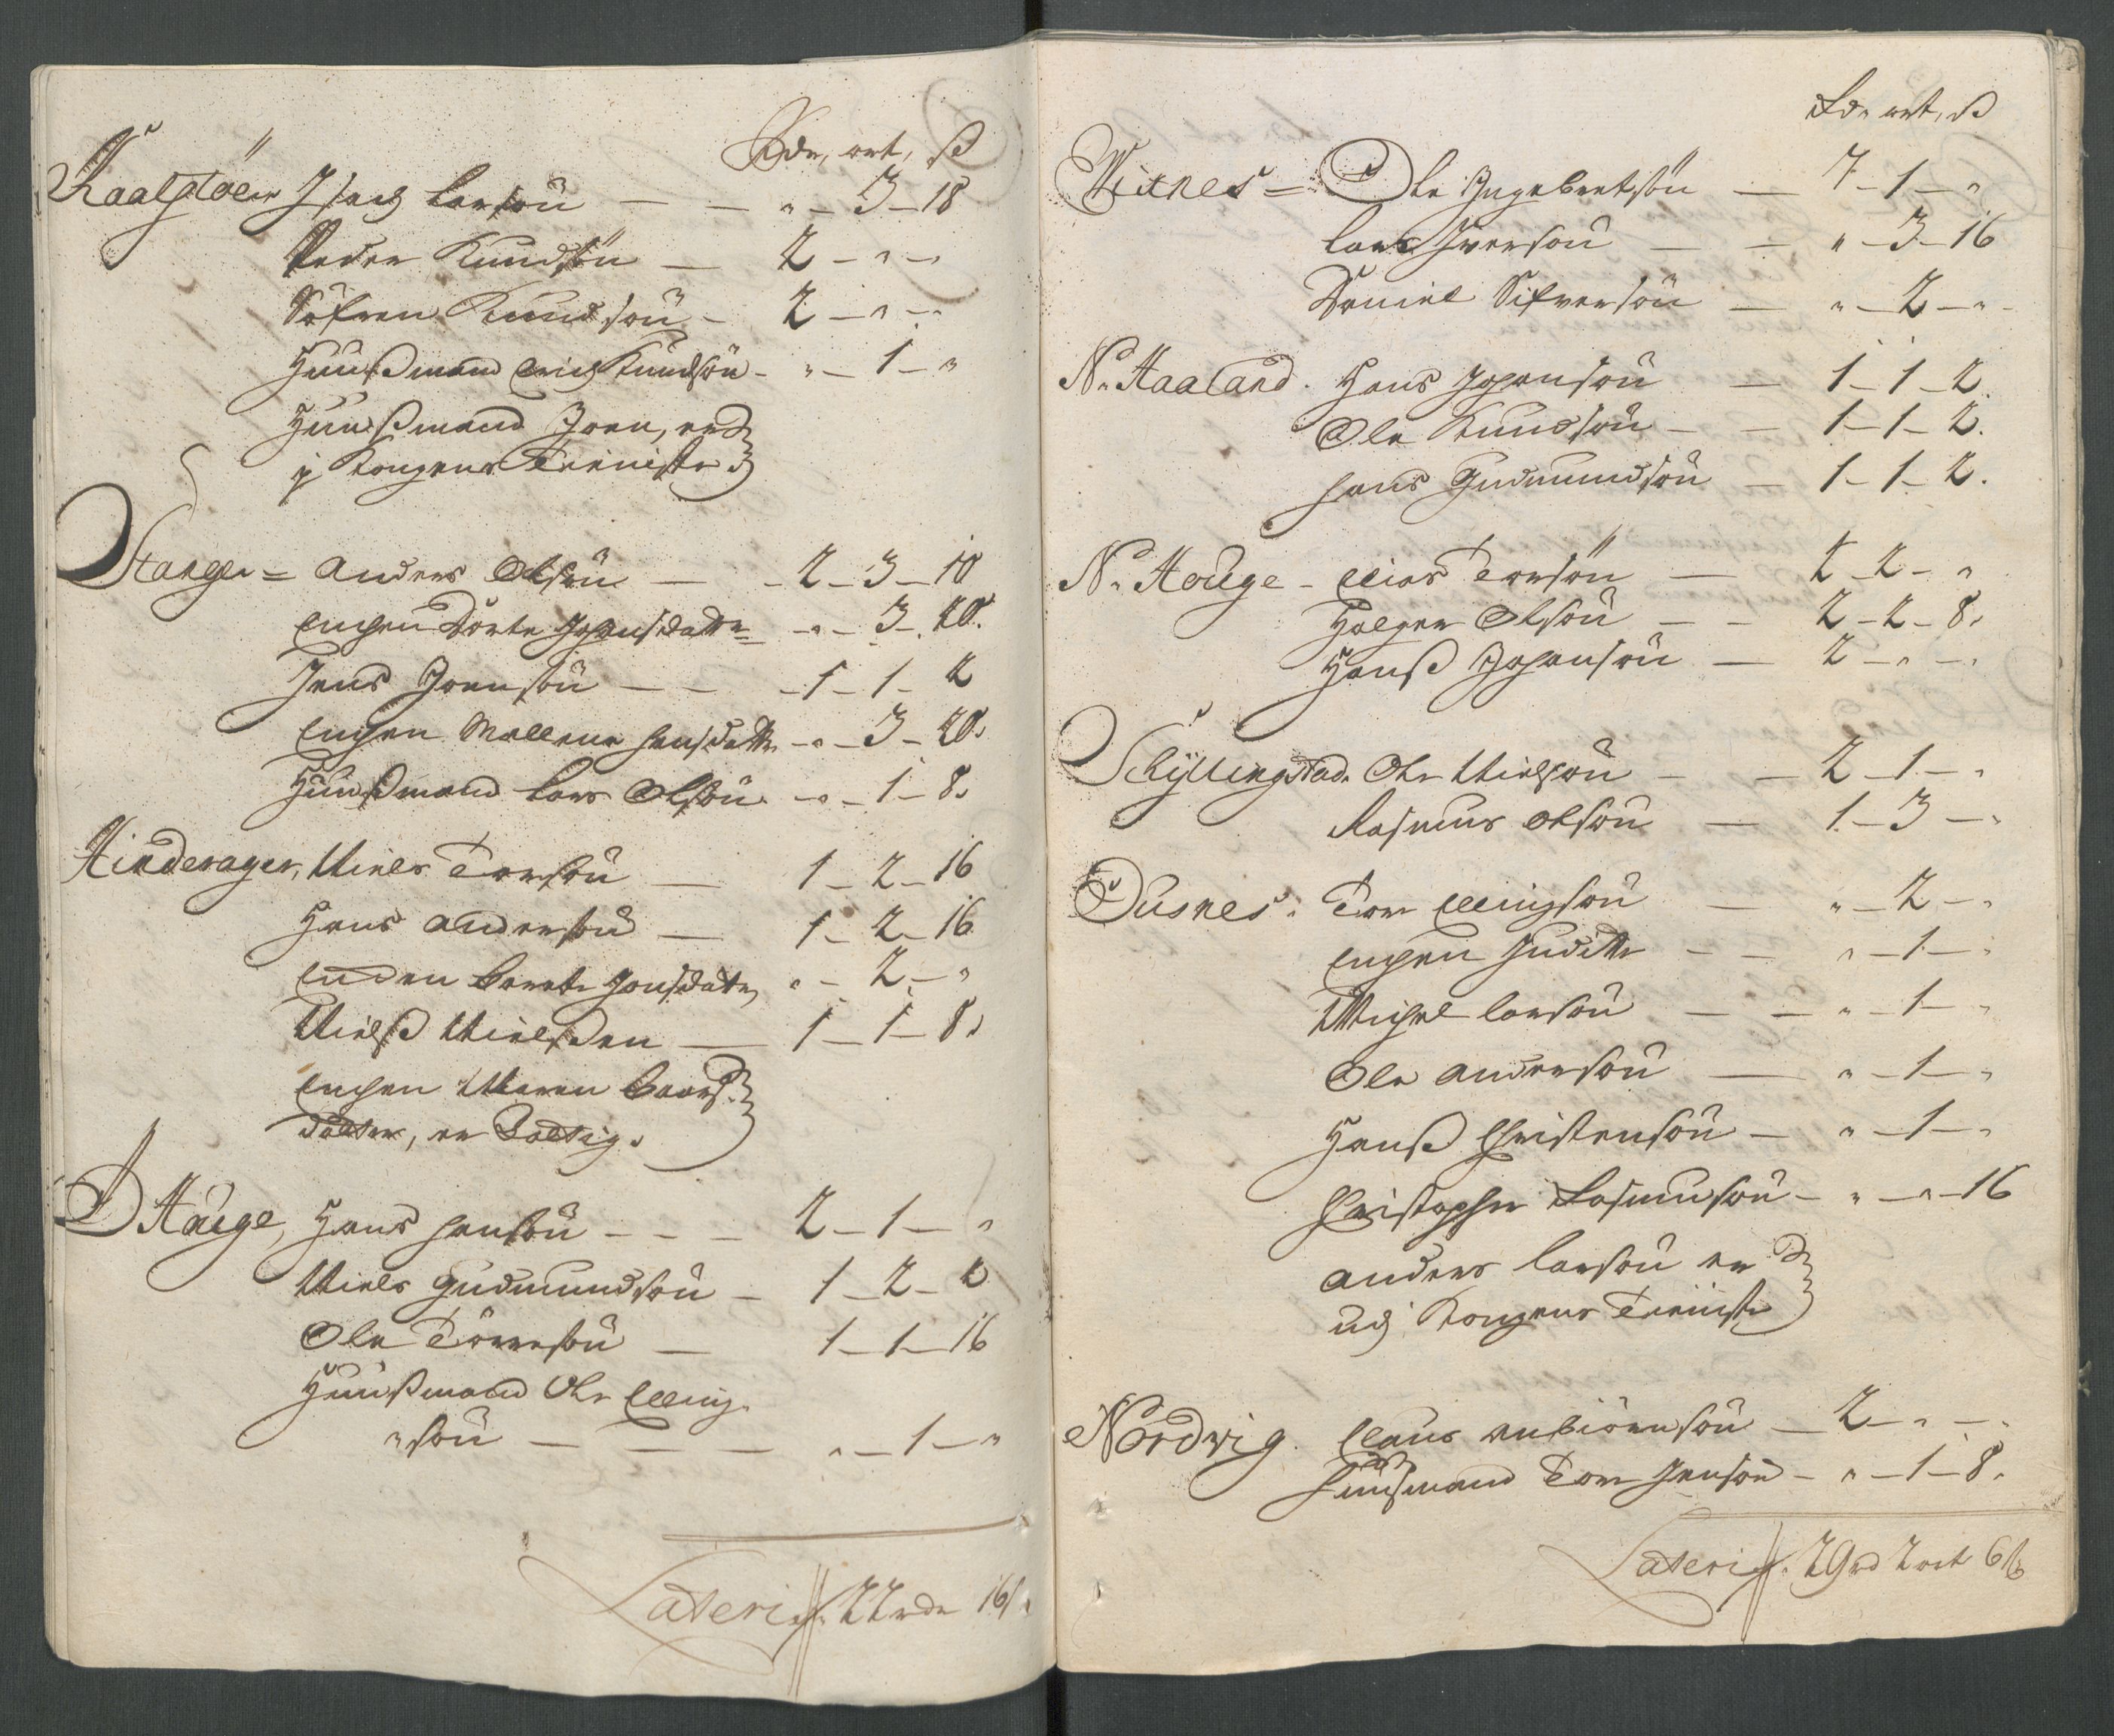 Rdr, ort, ß
Kaalgloen Isach Larsøn — — " — 3 — 18
Peder Knudsøn — 2 — " — "
Søfren Knudsøn — 2 — " — "
Huußmand Erich Knudsøn — " — 1 — "
Huußmand Joen, er
i Kongens Tieniste
Stange = Anders Olsøn — 2 — 3 — 10
Enchen Dorte Johansdatter — " — 3 — 20.
Jens Joensøn — — 1 — 1 — 2
Enchen Mallene Hansdatter — " — 3 — 20.
Huußmand Lars Olsøn — " — 1 — 8.
Hinderager, Niels Torsøn — 1 — 2 — 16
Hans Andersøn — 1 — 2 — 16
Enchen Berete Jonsdatter " — 2 — "
Nielß Nielßen — 1 — 1 — 8.
Enchen Maren Baars-
datter, er
Hauge, Hans Hansøn — — — 2 — 1 — "
Niels Gudmundsøn — 1 — 2 — 2
Ole Tørresøn — 1 — 1 — 16
Huußmand Ole Elling-
"søn — — — " — 1 — "
Lateris 22 rdr 16 ß.
Rdr ort, ß
Witnes = Ole Ingebretsøn — 7 — 1 — "
Lars Iversøn — — " — 3 — 16
Daniel Sifversøn — " — 2 — "
N. Haaland. Hans Johansøn — 1 — 1 — 2.
Ole Knudsøn — — 1 — 1 — 2.
Hans Gudmundsøn — 1 — 1 — 2.
N. Houge — Elias Torsøn — 2 — 2 — "
Holger Olsøn — — 2 — 2 — 8.
Hanß Johansøn — 2 — " — "
Schyllingstad. Ole Nielsøn — — 2 — 1 — "
Rasmus Olsøn — 1 — 3 — "
Dusnes. Tore Ellingsøn — " — 2 — "
Enchen Judithe — — " — 1 — "
Michel Larsøn — — " — 1 — "
Ole Andersøn — " — 1 — "
Hanß Christensøn — " — 1 — "
Christopher Rasmusøn — " — " — 16
Anders Larsøn er
udj Kongens Tieniste
Nordwig. Claus Anbiørnsøn — 2 — " — "
Huusmand Tore Jensøn — " — 1 — 8.
Lateris 29 rd 2 ort 6 ß